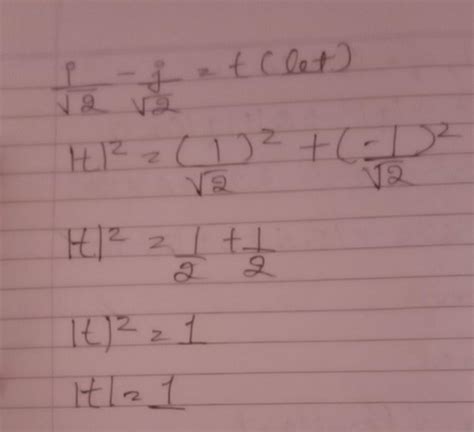 i/√2 - j/√2 = t (let)
|t|² = (1/√2)² + (-1/√2)²
|t|² = 1/2 + 1/2
|t|² = 1
|t| = 1